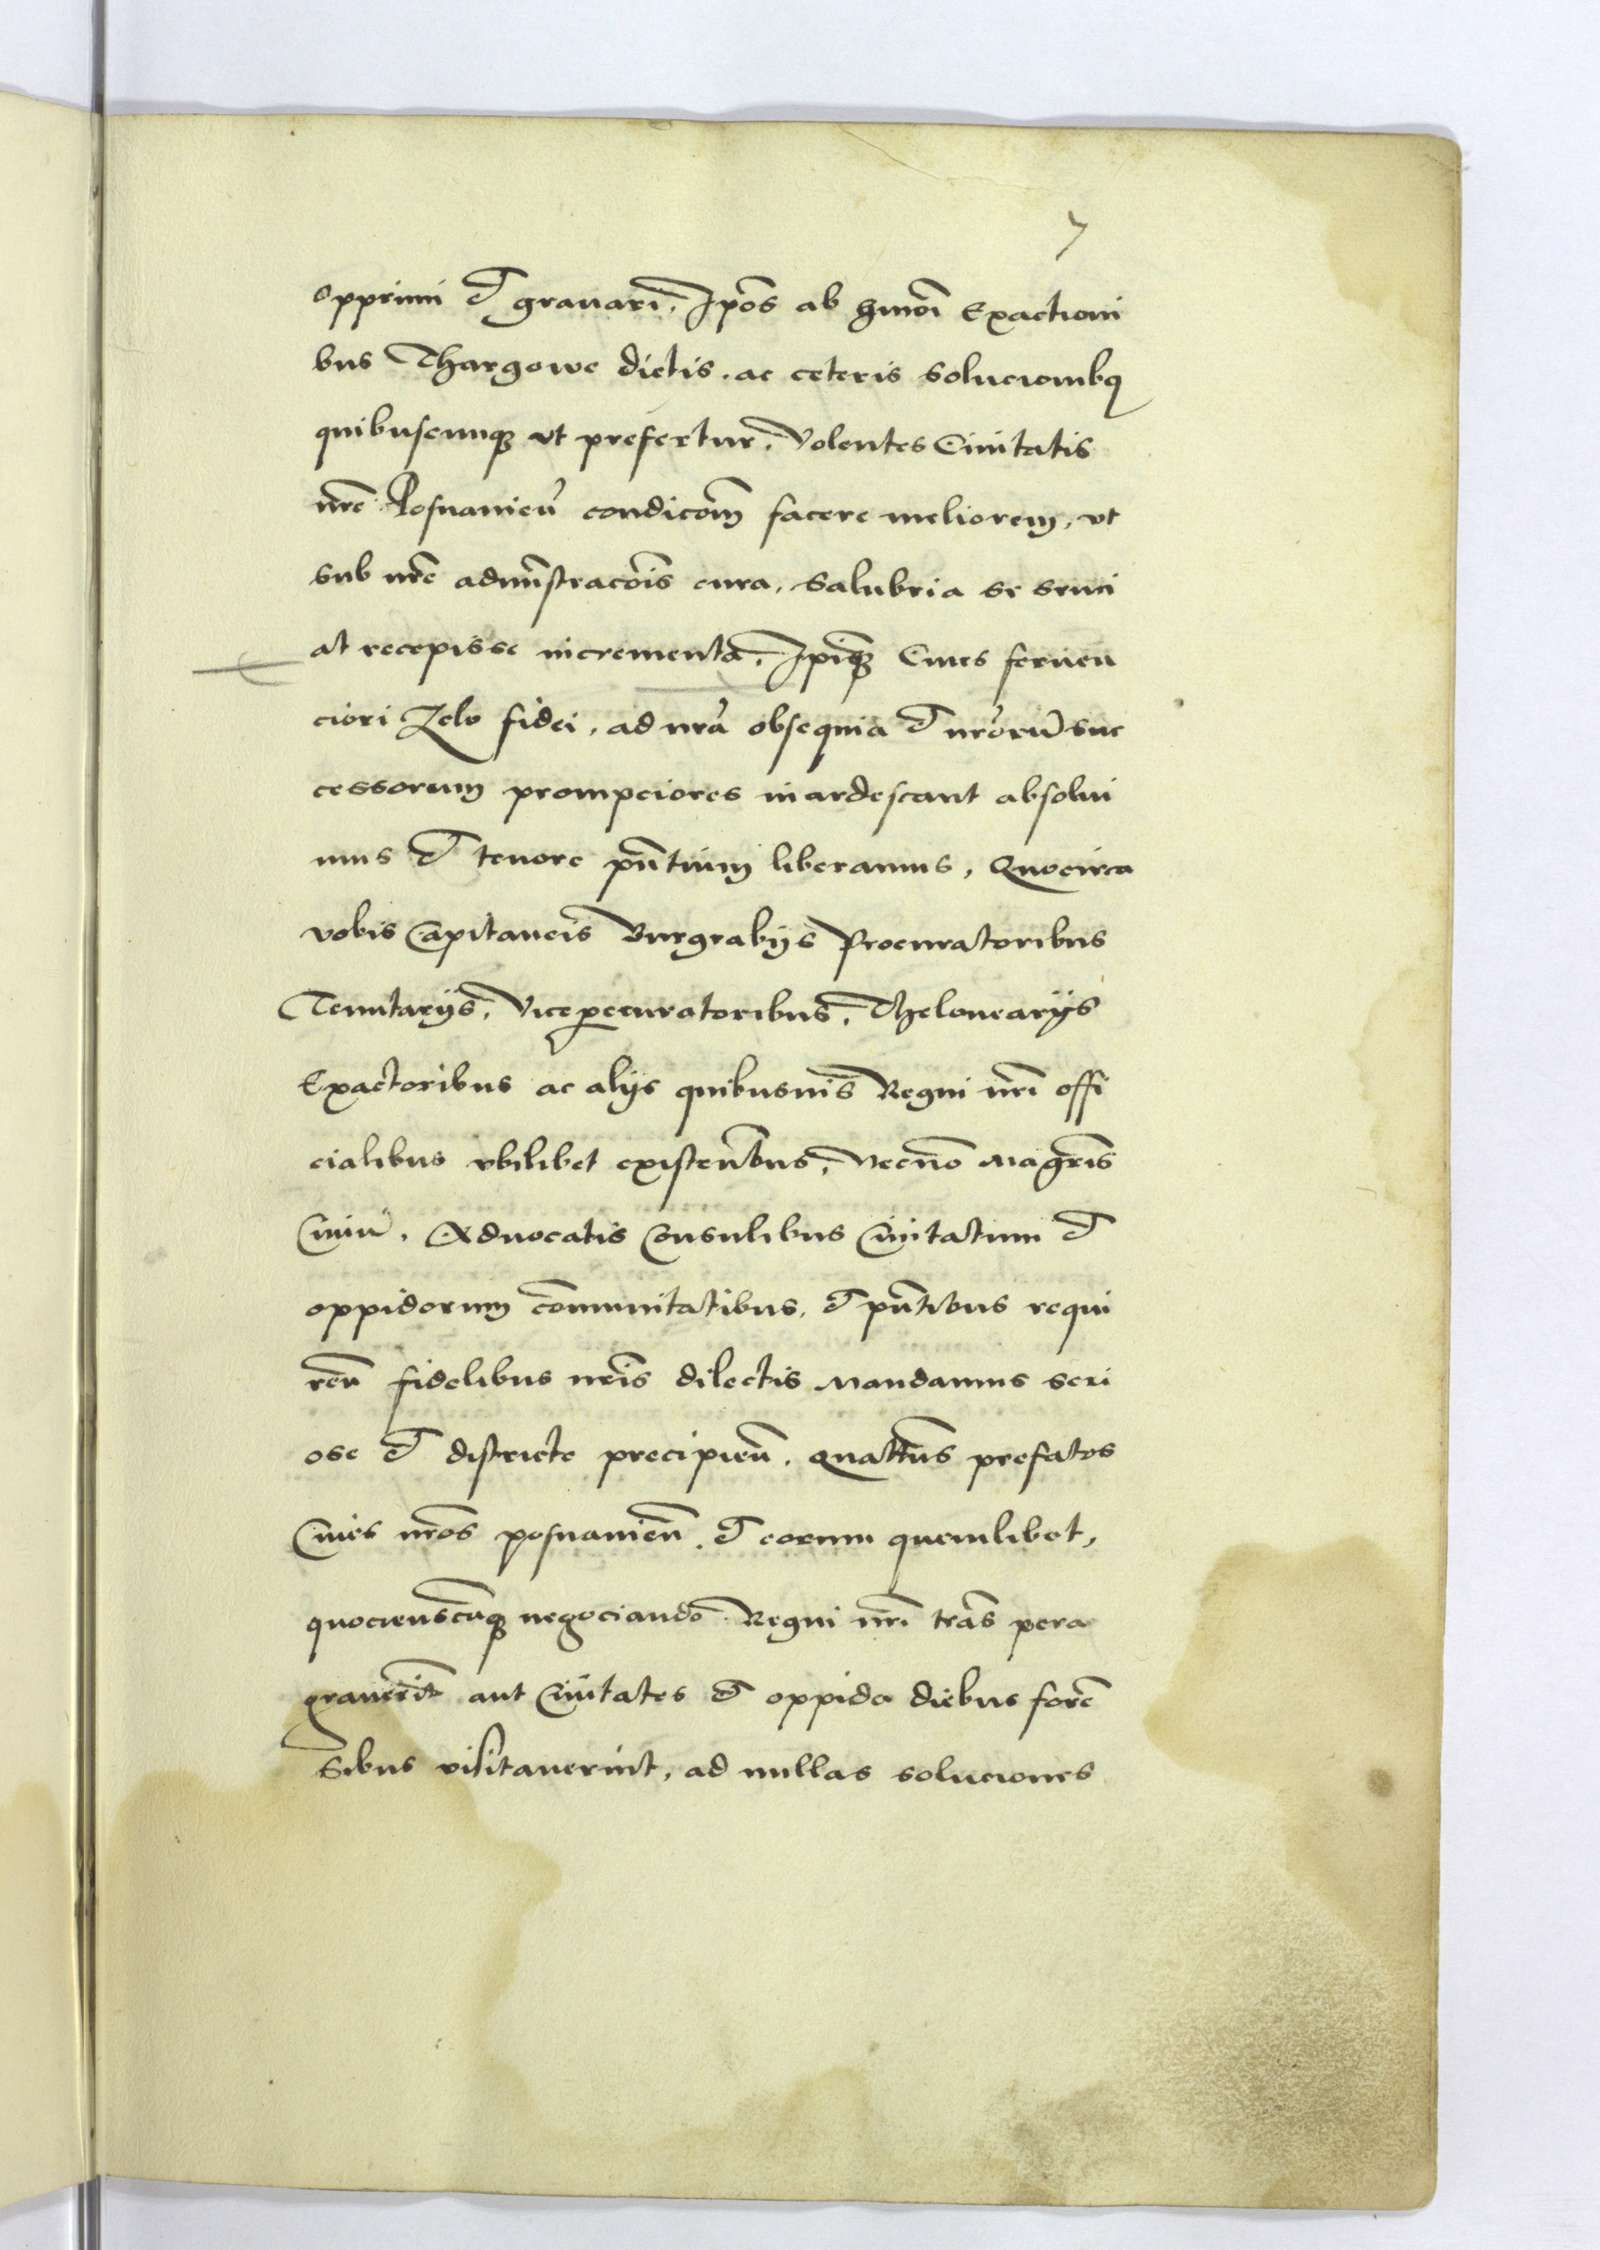 7
opprimi et grauari, Ip̄os ab hm̄ōi Exactioni
bus Thargowe dictis . ac ceteris Solucionibq
quibuscunqȝ vt prefertur. Volentes Ciuitatis
nr̄e Posnanien̄ condicōm facere meliorem, vt
sub nr̄e admīstracōis cura, Salubria se senci
at recepisse incrementa, Ip̄iqȝ Ciues feruen
ciori Zelo fidei, ad nr̄a obsequia et nr̄orū suc
cessorum prompciores inardescant absolui
mus et tenore pn̄tium liberamus, Quocirca
vobis Capitaneis Burgrabijs Procuratoribus
Tenutarijs, Viceꝓcuratoribus, Thelonearijs
Exactoribus ac alijs quibusuis Regni nr̄i offi
cialibus vbilibet existen̄tbus, Necnō Magr̄is
Ciuiū . Aduocatis Consulibus Ciuitatum et
oppidorum cōmunitatibus, et pn̄tibus requi
ren̄ fidelibus nr̄is dilectis Mandamus seri
ose et districte precipien̄ . Quatt̄us prefatos
Ciues nr̄os posnanien̄ . et eorum quemlibet,
quocienscūqȝ negociando Regni nr̄i tr̄as pera
grauerīt aut Ciuitates et oppida diebus foren̄
sibus visitauerint, ad nullas soluciones